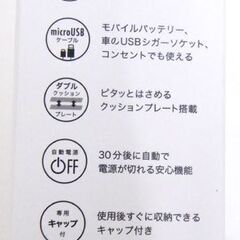 microUSB
ケーブル
モバイルバッテリー、
車のUSBシガーソケット、
コンセントでも使える
ダブル
クッション
プレート
ピタッとはさめる
クッションプレート搭載
自動電源
OFF
30分後に自動で
電源が切れる安心機能
専用
キャップ
付
使用後すぐに収納できる
キャップ付き